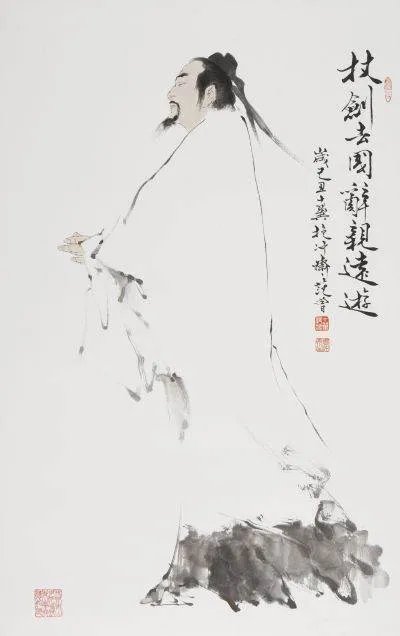 杖劍去國辭親遠遊
歲己丑十翼抱冲齋范曾